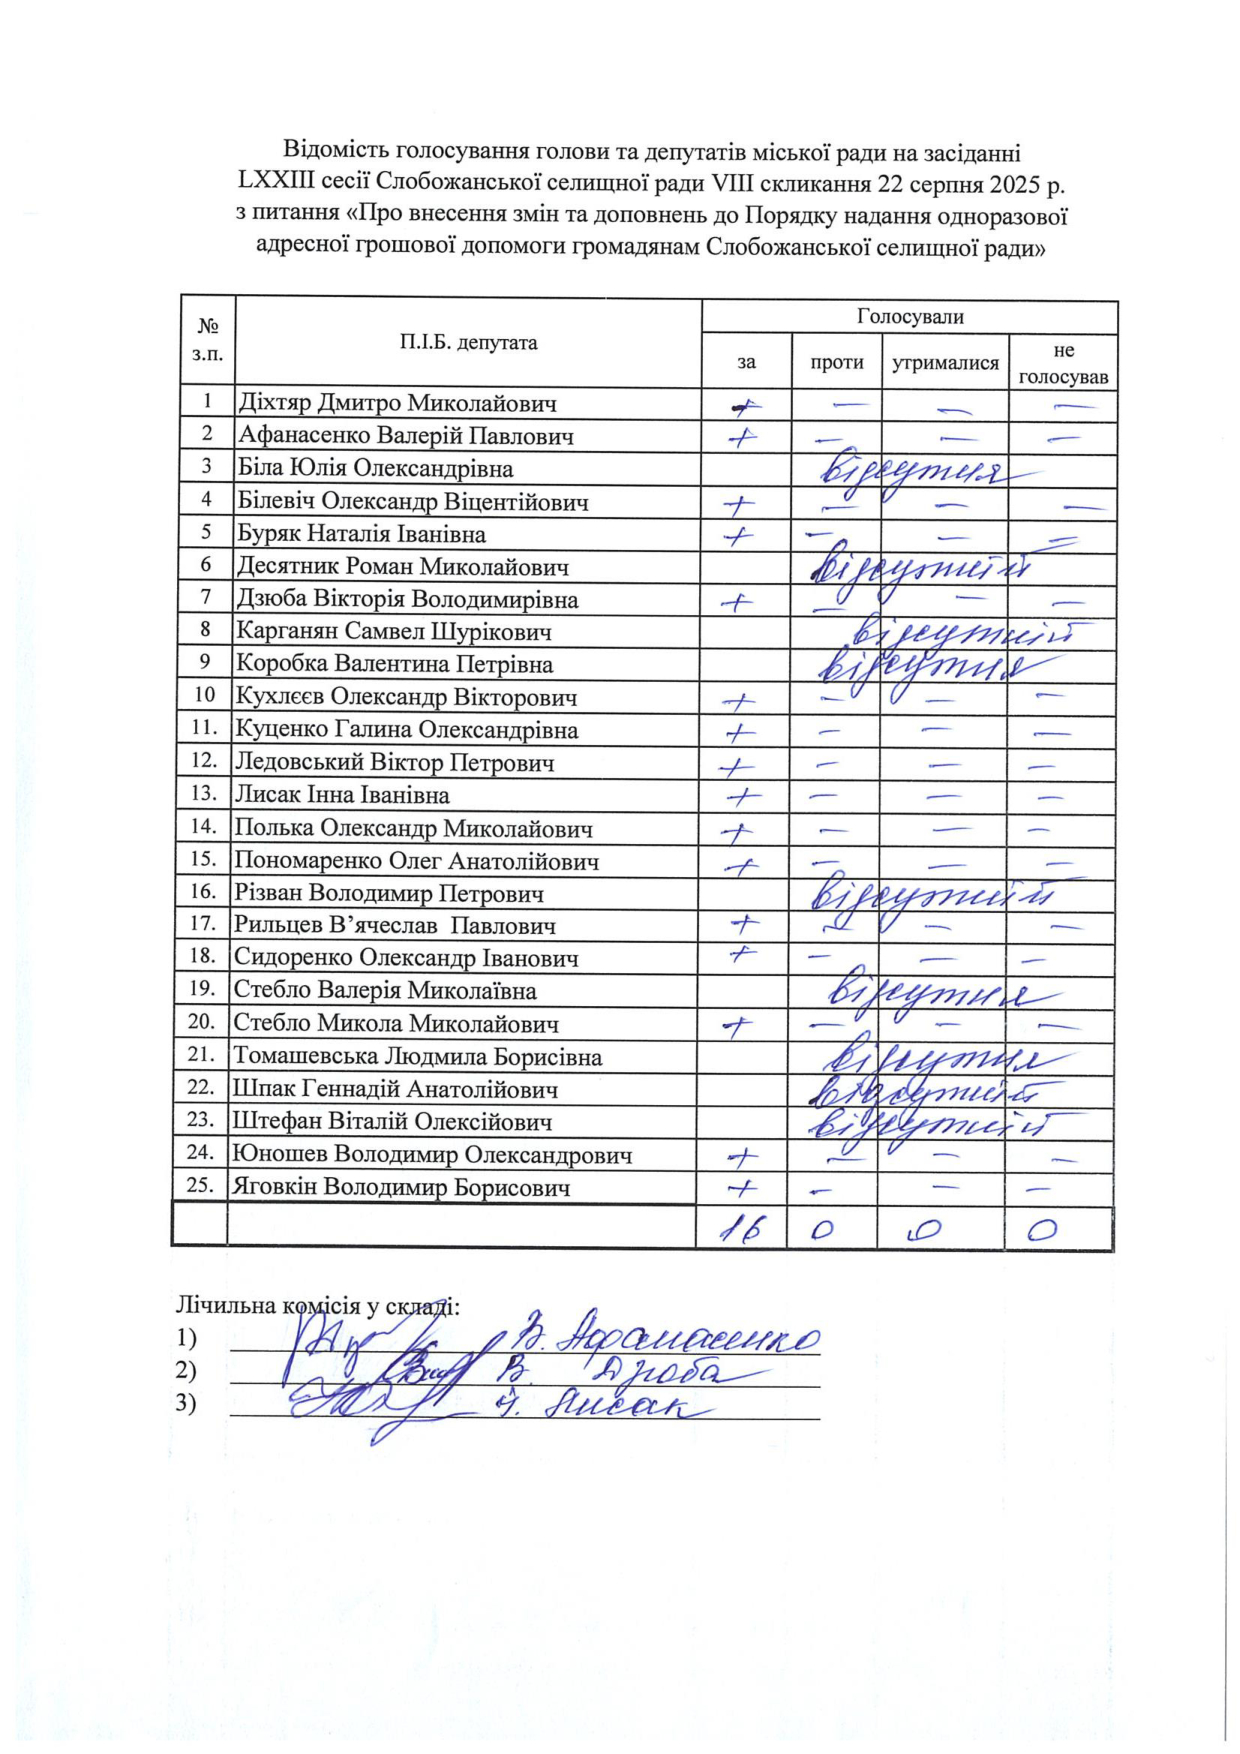 Відомість голосування голови та депутатів міської ради на засіданні
LXXIII сесії Слобожанської селищної ради VIII скликання 22 серпня 2025 р.
з питання «Про внесення змін та доповнень до Порядку надання одноразової
адресної грошової допомоги громадянам Слобожанської селищної ради»
№ з.п. П.І.Б. депутата Голосували
за проти утрималися не голосував
1 Діхтяр Дмитро Миколайович + — — —
2 Афанасенко Валерій Павлович + — — —
3 Біла Юлія Олександрівна відсутня
4 Білевіч Олександр Віцентійович + — — —
5 Буряк Наталія Іванівна + — — —
6 Десятник Роман Миколайович відсутній
7 Дзюба Вікторія Володимирівна + — — —
8 Карганян Самвел Шурікович відсутній
9 Коробка Валентина Петрівна відсутня
10 Кухлєєв Олександр Вікторович + — — —
11. Куценко Галина Олександрівна + — — —
12. Ледовський Віктор Петрович + — — —
13. Лисак Інна Іванівна + — — —
14. Полька Олександр Миколайович + — — —
15. Пономаренко Олег Анатолійович + — — —
16. Різван Володимир Петрович відсутній
17. Рильцев В’ячеслав Павлович + — — —
18. Сидоренко Олександр Іванович + — — —
19. Стебло Валерія Миколаївна відсутня
20. Стебло Микола Миколайович + — — —
21. Томашевська Людмила Борисівна відсутня
22. Шпак Геннадій Анатолійович відсутній
23. Штефан Віталій Олексійович відсутній
24. Юношев Володимир Олександрович + — — —
25. Яговкін Володимир Борисович + — — —
16 0 0 0
Лічильна комісія у складі:
1) В. Афанасенко
2) В. Дзюба
3) І. Лисак